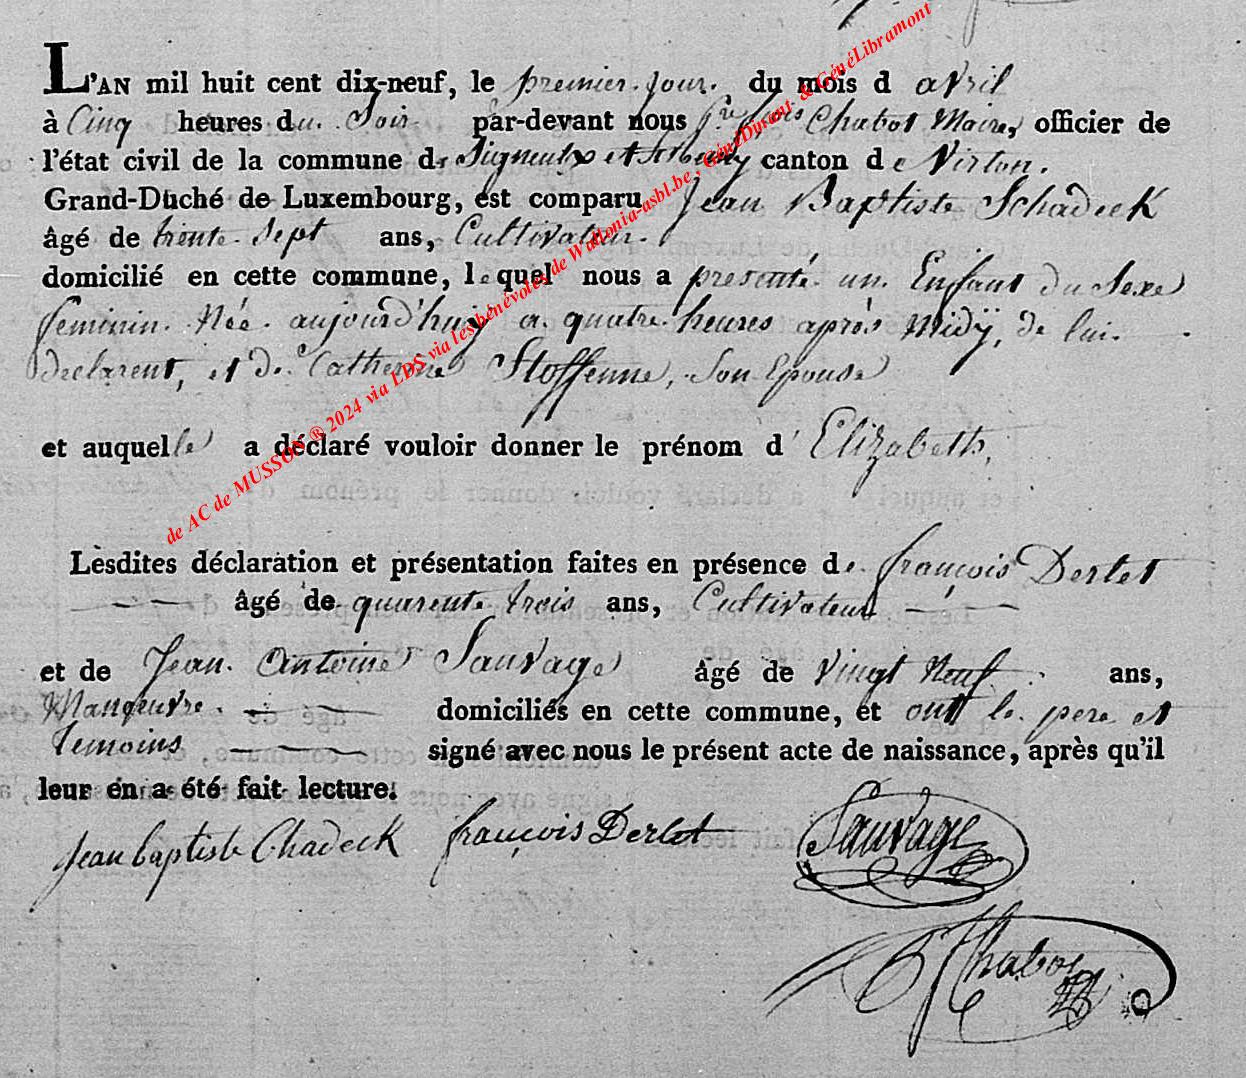 L'AN mil huit cent dix-neuf, le premier jour du mois d avril
à Cinq heures du Soir par-devant nous Chabot Maire, officier de
l'état civil de la commune de Signeulx et canton de Virton.
Grand-Duché de Luxembourg, est comparu Jean Baptiste Schadeck
âgé de trente Sept ans, Cultivateur.
domicilié en cette commune, lequel nous a presenté un Enfant du Sexe
feminin. Née aujourd'huy a quatre heures après Midÿ, de lui
declarent, et de Catherine Stoffenne, Son Epouse
et auquelle a déclaré vouloir donner le prénom d' Elizabeth,
Lesdites déclaration et présentation faites en présence de françois Derlet
âgé de quarente trois ans, Cultivateur
et de Jean Antoine Sauvage âgé de vingt Neuf ans,
Manœuvre domiciliés en cette commune, et ont le pere et
temoins signé avec nous le présent acte de naissance, après qu'il
leur en a été fait lecture.
Jean baptiste Chadeck françois Derlet Sauvage
Chabot
de AC de MUSSON ® 2024 via LDS via les bénévoles de Wallonia-asbl.be, GénéDinant & GénéLibramont